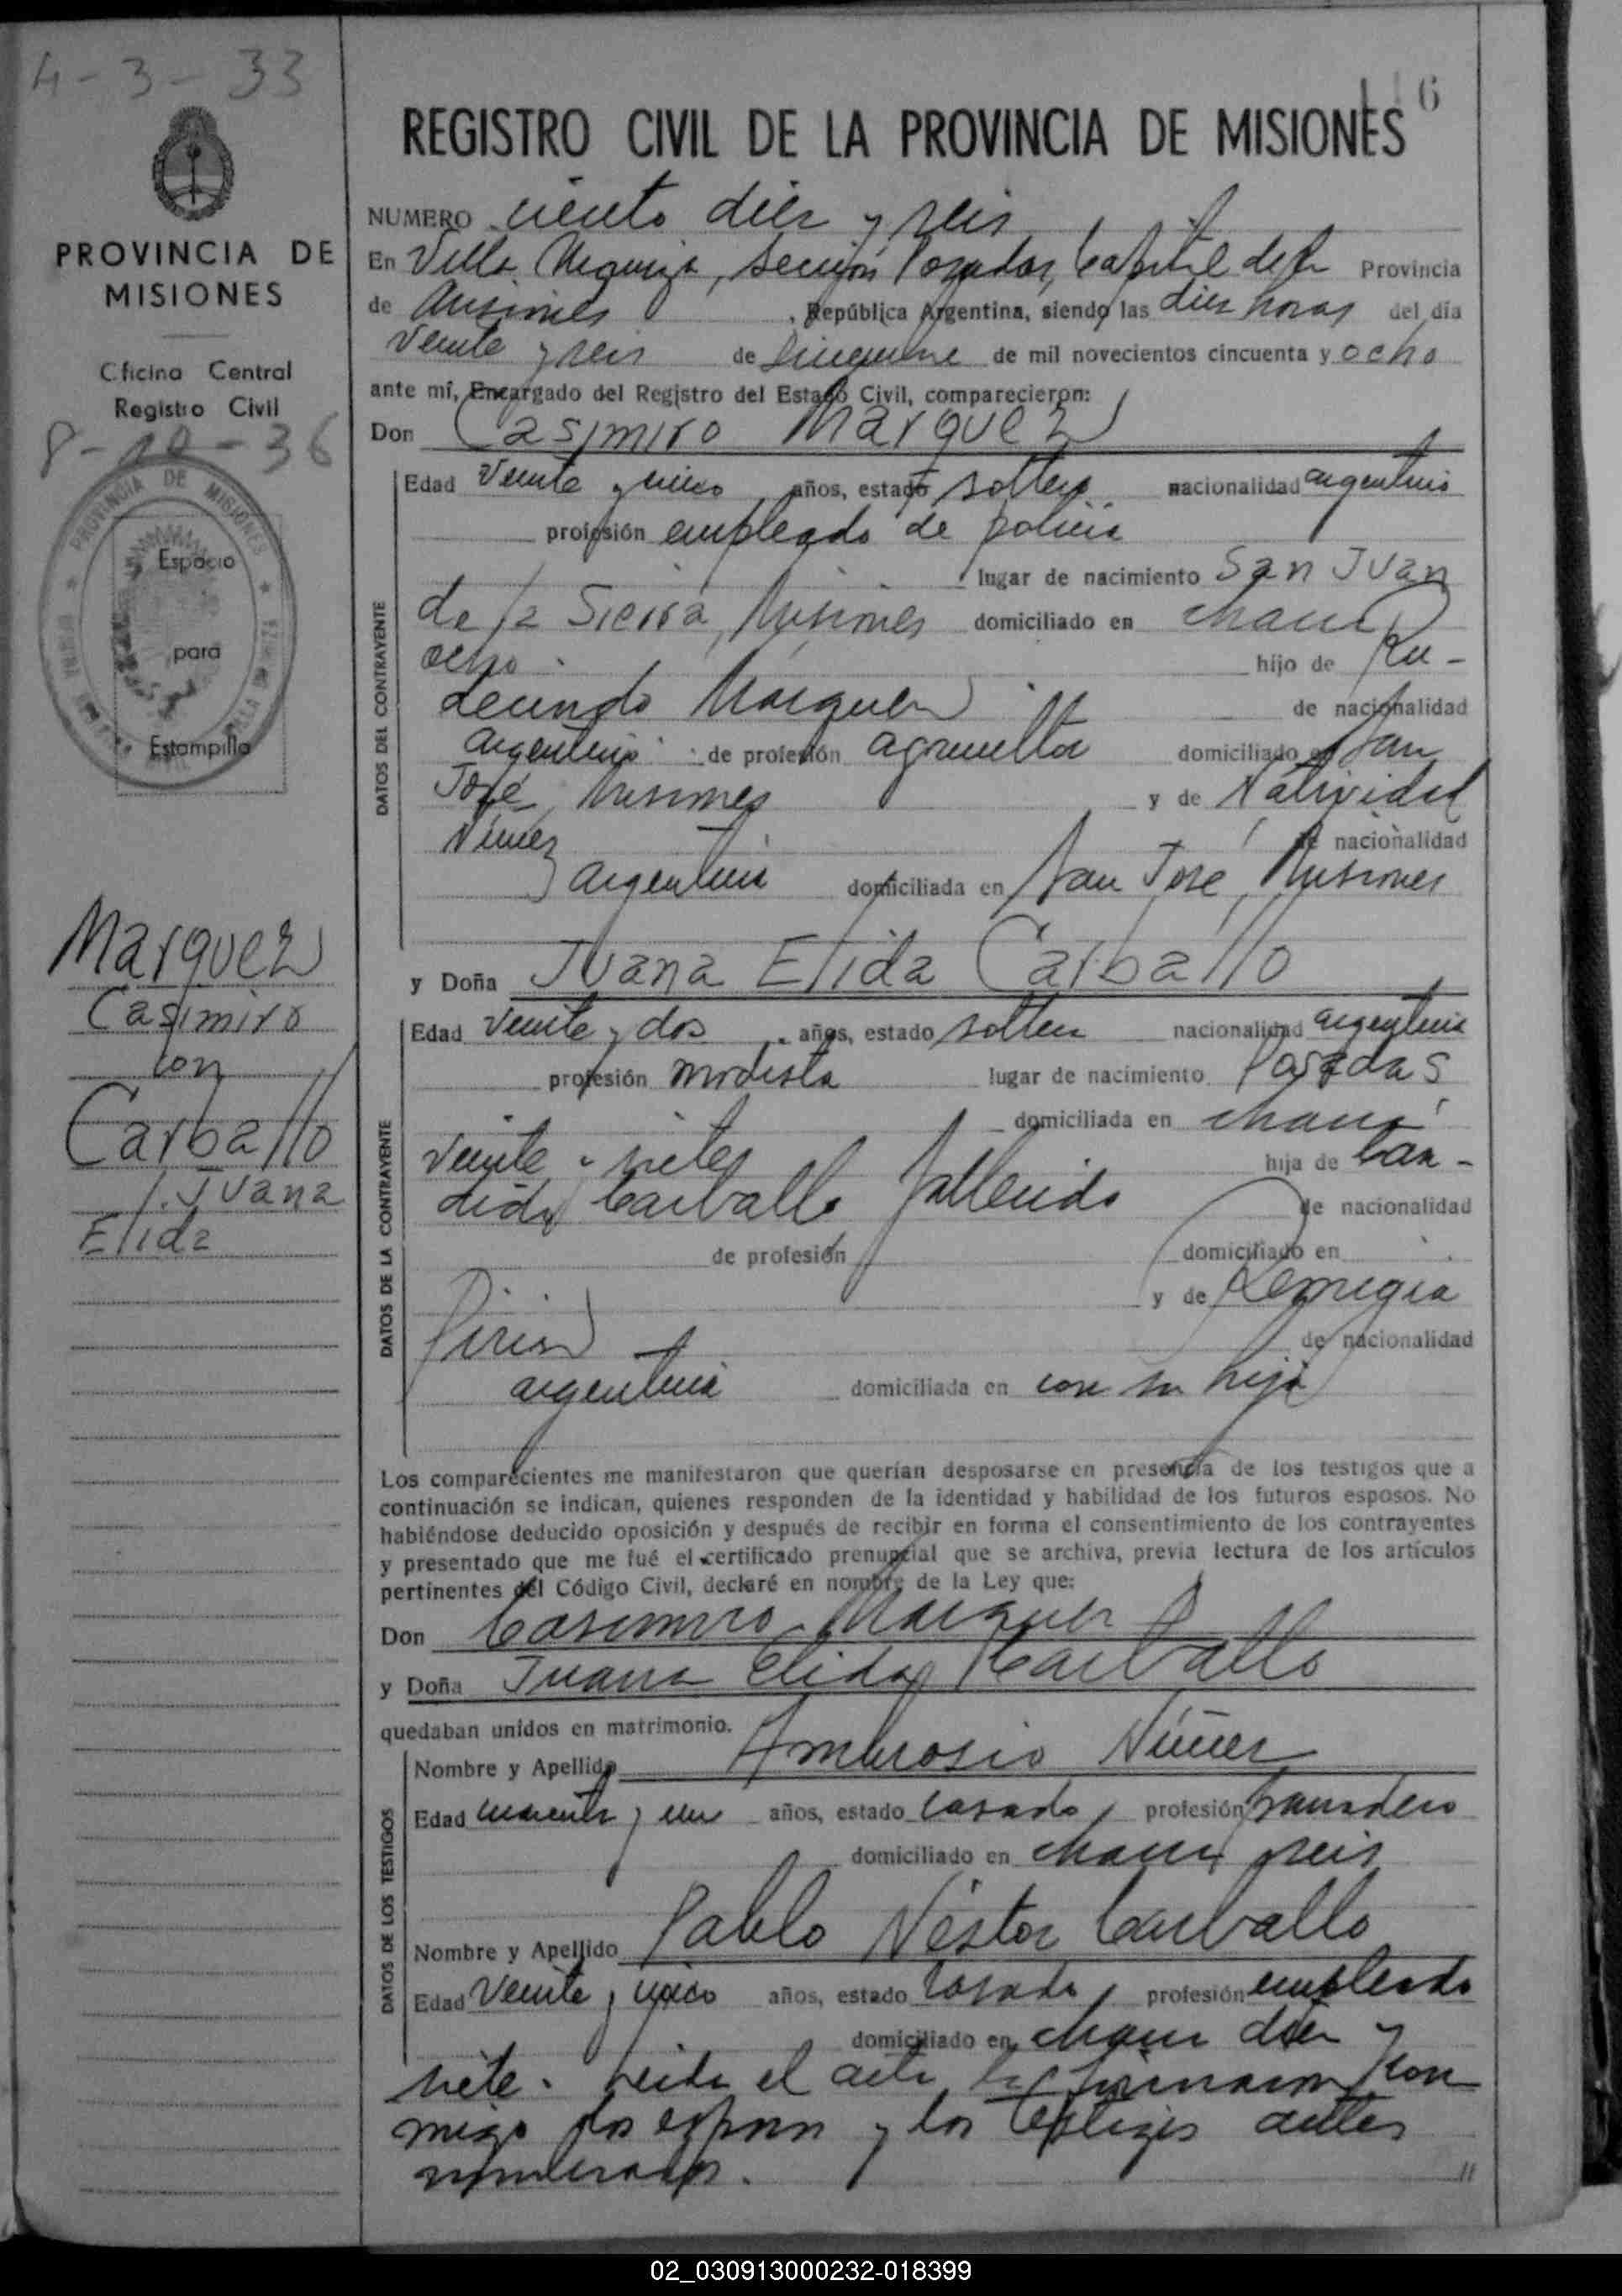 4-3-33
PROVINCIA DE
MISIONES
Oficina Central
Registro Civil
8-10-36
PROVINCIA DE MISIONES
Espacio
para
Estampilla
Marquez
Casimiro
con
Carballo
Juana
Elida
116
REGISTRO CIVIL DE LA PROVINCIA DE MISIONES
NUMERO ciento diez y seis
En Villa Urquiza, Sección Posadas, Capital de la Provincia
de Misiones, República Argentina, siendo las diez horas del día
Veinte y seis de de mil novecientos cincuenta y ocho
ante mí, Encargado del Registro del Estado Civil, comparecieron:
Don Casimiro Marquez
DATOS DEL CONTRAYENTE
Edad Veinte y cinco años, estado soltero nacionalidad argentino
profesión empleado de policia
lugar de nacimiento San Juan
de la Sierra, Misiones domiciliado en chacra
ocho. hijo de Ru-
decindo Márquez de nacionalidad
argentino de profesión agricultor domiciliado en San
José, Misiones y de Natividad
Núñez de nacionalidad
argentina domiciliada en San José, Misiones
y Doña Juana Elida Carballo
DATOS DE LA CONTRAYENTE
Edad Veinte y dos años, estado soltera nacionalidad argentina
profesión modista lugar de nacimiento Posadas
domiciliada en chacra
veinte y siete hija de Can-
dido Carballo fallecido de nacionalidad
de profesión domiciliado en
y de Remigia
Piris de nacionalidad
argentina domiciliada en con su hija
Los comparecientes me manifestaron que querían desposarse en presencia de los testigos que a
continuación se indican, quienes responden de la identidad y habilidad de los futuros esposos. No
habiéndose deducido oposición y después de recibir en forma el consentimiento de los contrayentes
y presentado que me fué el certificado prenupcial que se archiva, previa lectura de los artículos
pertinentes del Código Civil, declaré en nombre de la Ley que:
Don Casimiro Marquez
y Doña Juana Elida Carballo
quedaban unidos en matrimonio.
DATOS DE LOS TESTIGOS
Nombre y Apellido Ambrosio Núñez
Edad cuarenta y un años, estado casado, profesión panadero
domiciliado en chacra seis
Nombre y Apellido Pablo Néstor Carballo
Edad Veinte y cinco años, estado casado, profesión empleado
domiciliado en chacra diez y
siete. Leida el acta la firmaron con
migo los esposos y los testigos antes
nombrados.
02_030913000232-018399